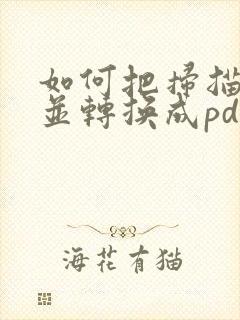 如何把掃描
並轉換成pd
海花有猫